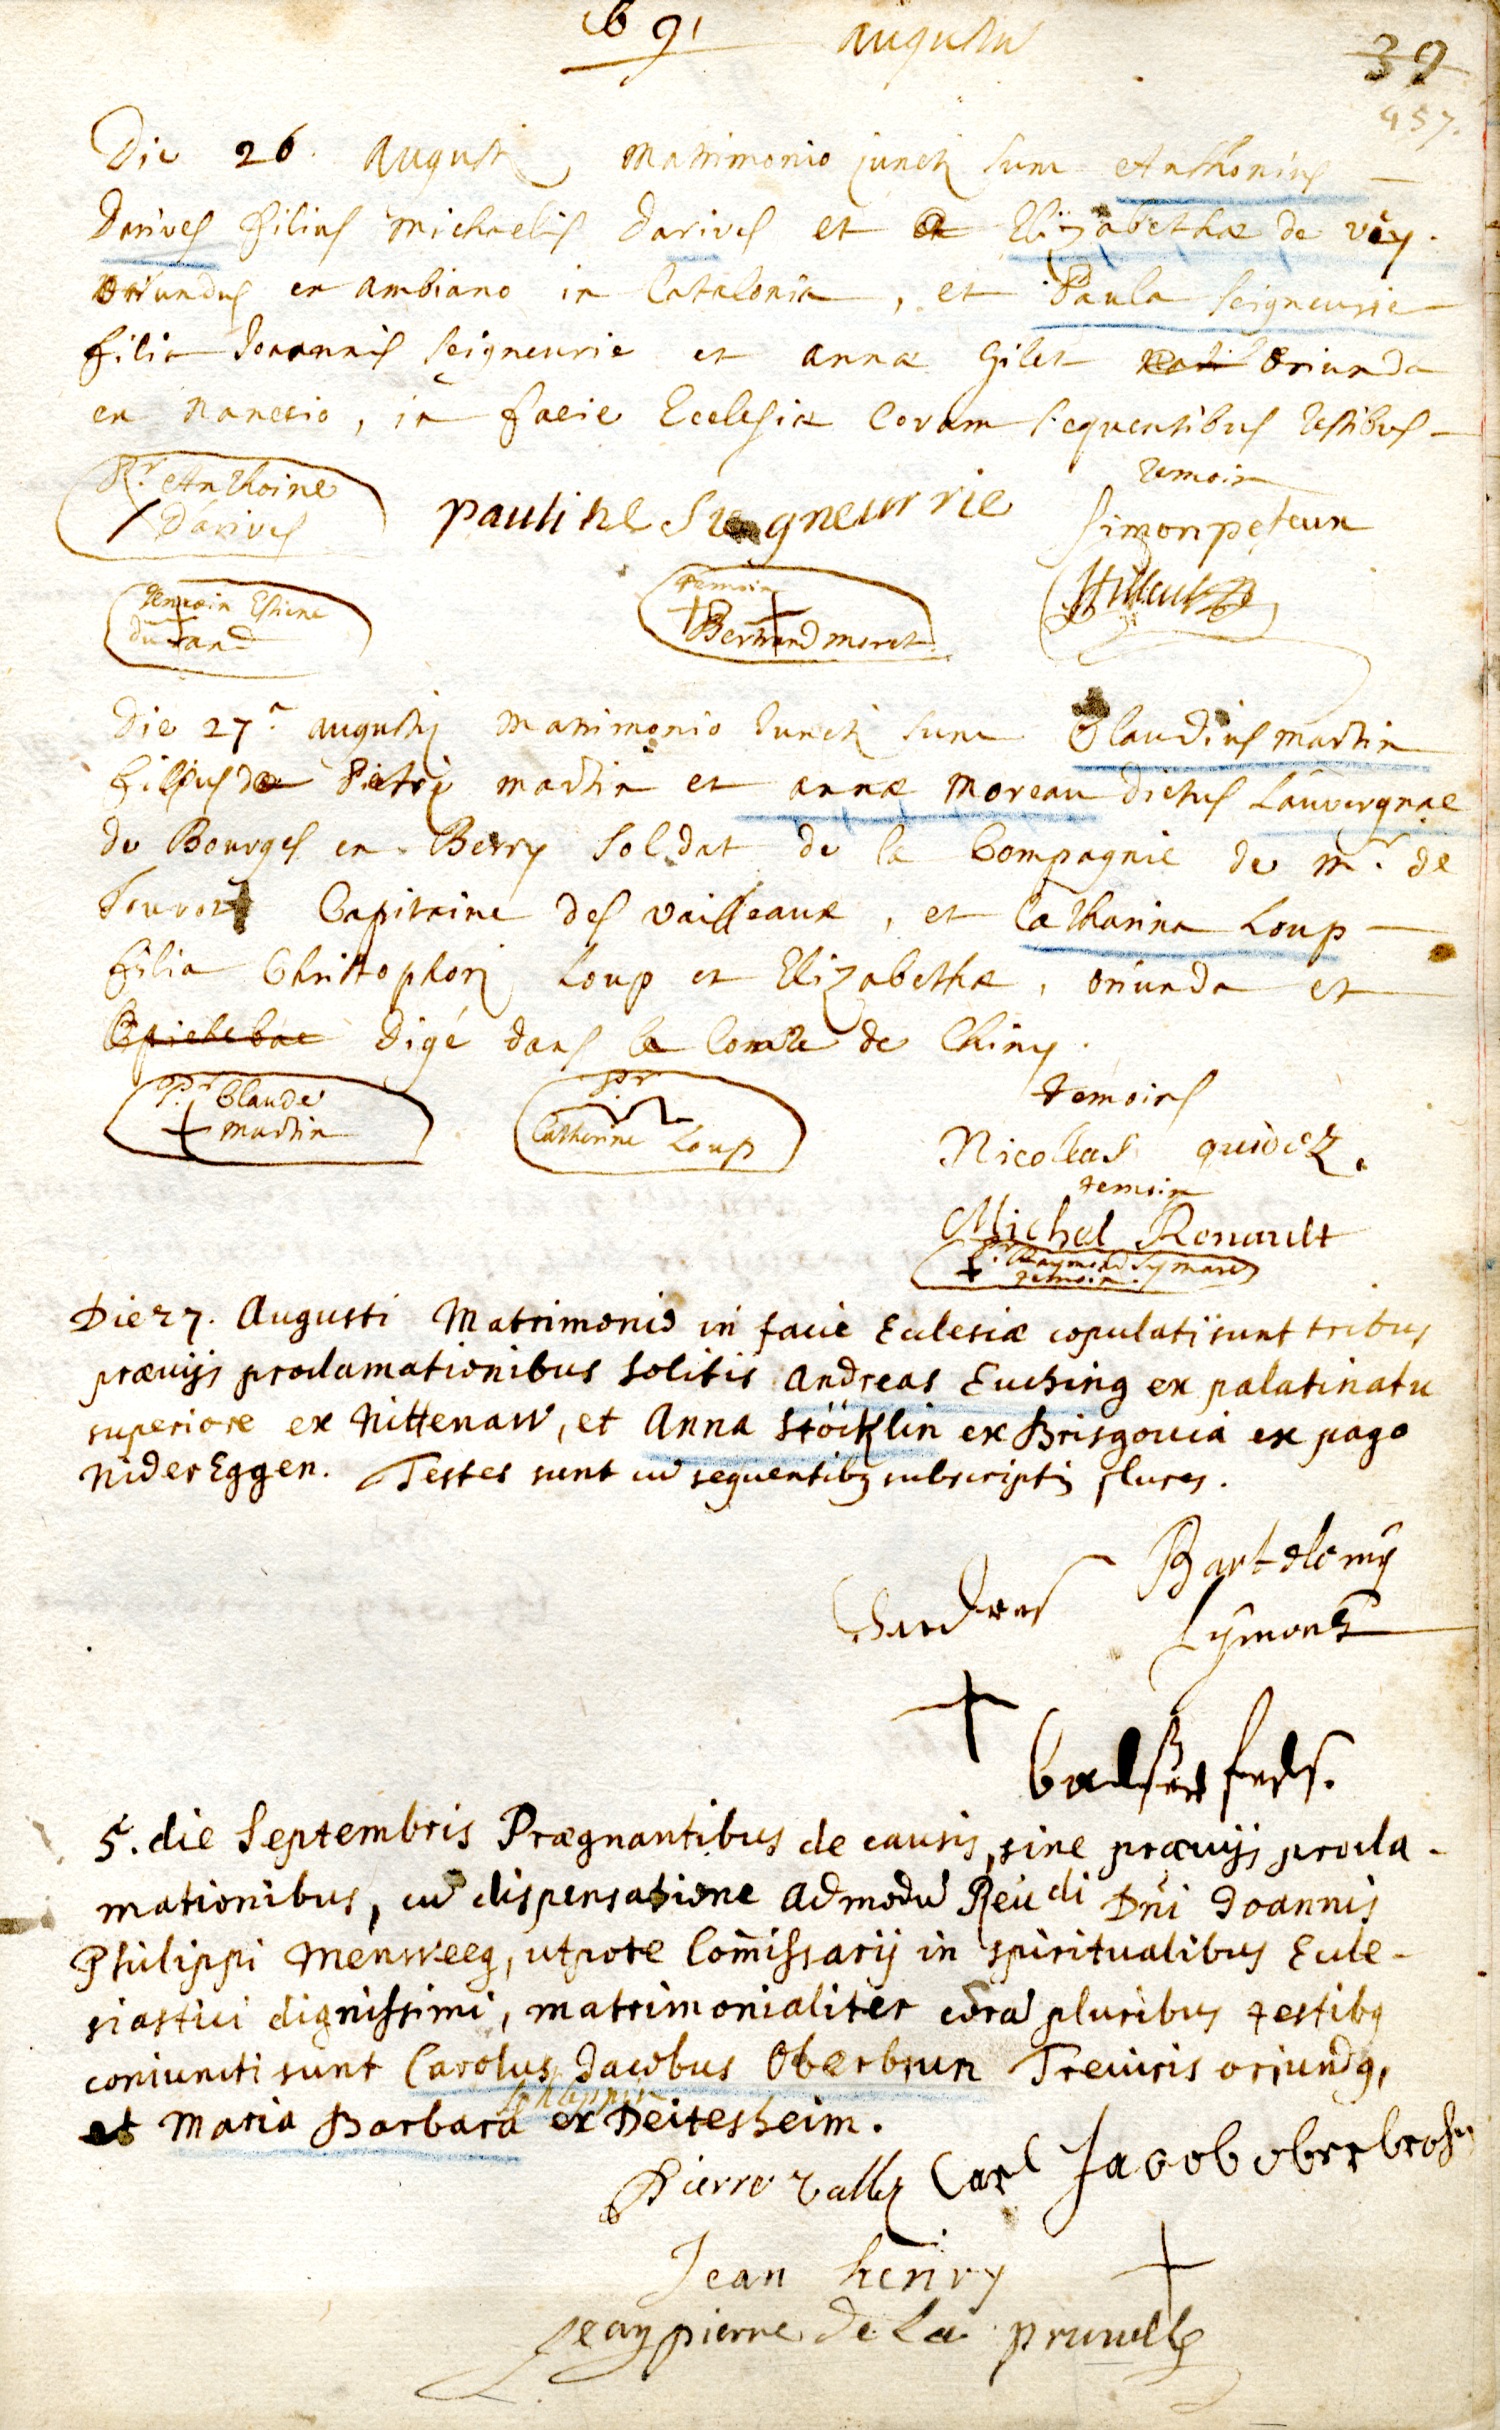 1691 augusti 39
457.
Die 26. Augusti Matrimonio juncti sunt Anthonius
Darives filius Michaelis Darives et Elizabethae de vey.
oriundus en Ambiano in Catalonia, et Paula Seigneurie
filia Joannis Seigneurie et annae Gilet oriunda
en Nanceio, in facie Ecclesiae Coram sequentibus testibus
pr. Anthoine temoin
Darives pauline Siegneurrie Simon peteur
temoin Estiene temoin
durand Bertrand moret
Die 27.a augusti Matrimonio Juncti sunt Claudius martin
filius de Pietri martin et annae Moreau dictus Lauvergnae
de Bourges en Berry Soldat de la Compagnie de Mr. de
Capitaine des vaisseaux, et Catharina Loup
filia Christophori Loup et Elizabethae, oriunda et
digé dans le Comté de Chiny.
pr. Claude pr temoins
martin Catherine Loup Nicollas quidez.
temoin
Michel Renault
pr. Raymond Symare
temoin.
Die 27. Augusti Matrimonio in facie Eclesiae copulati sunt tribus
praeuijs proclamationibus solitis Andreas Euching ex palatinatu
superiore ex Nittenaw, et Anna Stöcklin ex Brisgouia ex pago
Nider Eggen. Testes sunt cu sequentibq subscriptis plures.
Bartolomy
Andreas Symons

5. die Septembris Praegnantibus de causis, sine praeuijs procla-
mationibus, cu dispensatione Admodu Reudi Dni Joannis
Philippi Mensweeg, utpote Comissarij in spiritualibus Ecle-
siastici dignissimi, matrimonialiter cora pluribus testibq
coniuncti sunt Carolus Jacobus Oberbrun Treuiris oriundq,
et Maria Barbara ex Deitesheim.
Pierre vallez Carl Jacob
Jean henry
Jean pierre de La prunelle